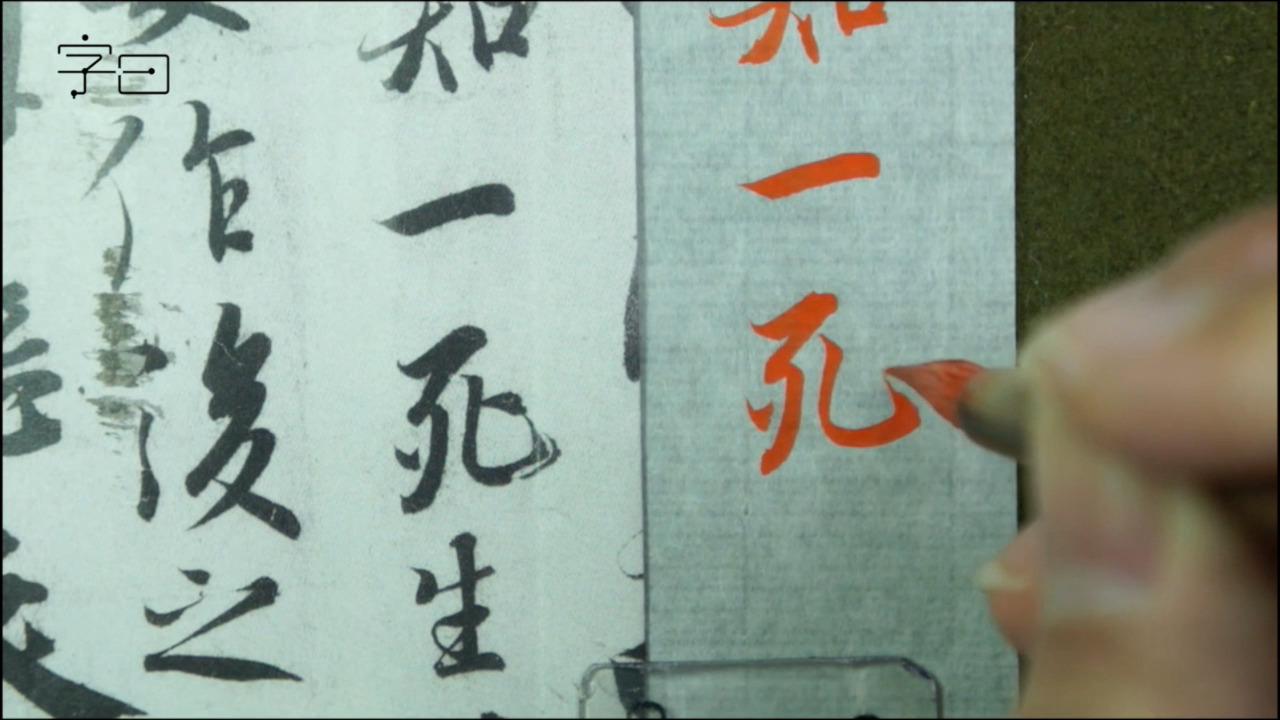 知一死
知一死生
作後之